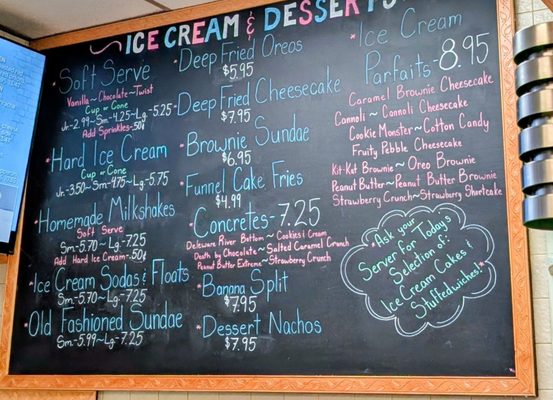 ICE CREAM & DESSERTS
* Soft Serve
Vanilla~Chocolate~Twist
Cup or Cone
Jr.-2.99~Sm-4.25~Lg.-5.25
Add Sprinkles-.50¢
* Hard Ice Cream
Cup or Cone
Jr.-3.50~Sm-4.75~Lg-5.75
* Homemade Milkshakes
Soft Serve
Sm-5.70~Lg-7.25
Add Hard Ice Cream-.50¢
* Ice Cream Sodas & Floats
Sm-5.70~Lg-7.25
* Old Fashioned Sundae
Sm.-5.99~Lg-7.25
* Deep Fried Oreos
$5.95
* Deep Fried Cheesecake
$7.95
* Brownie Sundae
$6.95
* Funnel Cake Fries
$4.99
* Concretes-7.25
Delaware River Bottom~Cookies & Cream
Death by Chocolate~Salted Caramel Crunch
Peanut Butter Extreme~Strawberry Crunch
* Banana Split
$7.95
* Dessert Nachos
$7.95
* Ice Cream
Parfaits-8.95
Caramel Brownie Cheesecake
Cannoli~Cannoli Cheesecake
Cookie Monster~Cotton Candy
Fruity Pebble Cheesecake
Kit-Kat Brownie~Oreo Brownie
Peanut Butter~Peanut Butter Brownie
Strawberry Crunch~Strawberry Shortcake
* Ask your
Server for Today's
Selection of:
Ice Cream Cakes &
Stuffedwiches! *